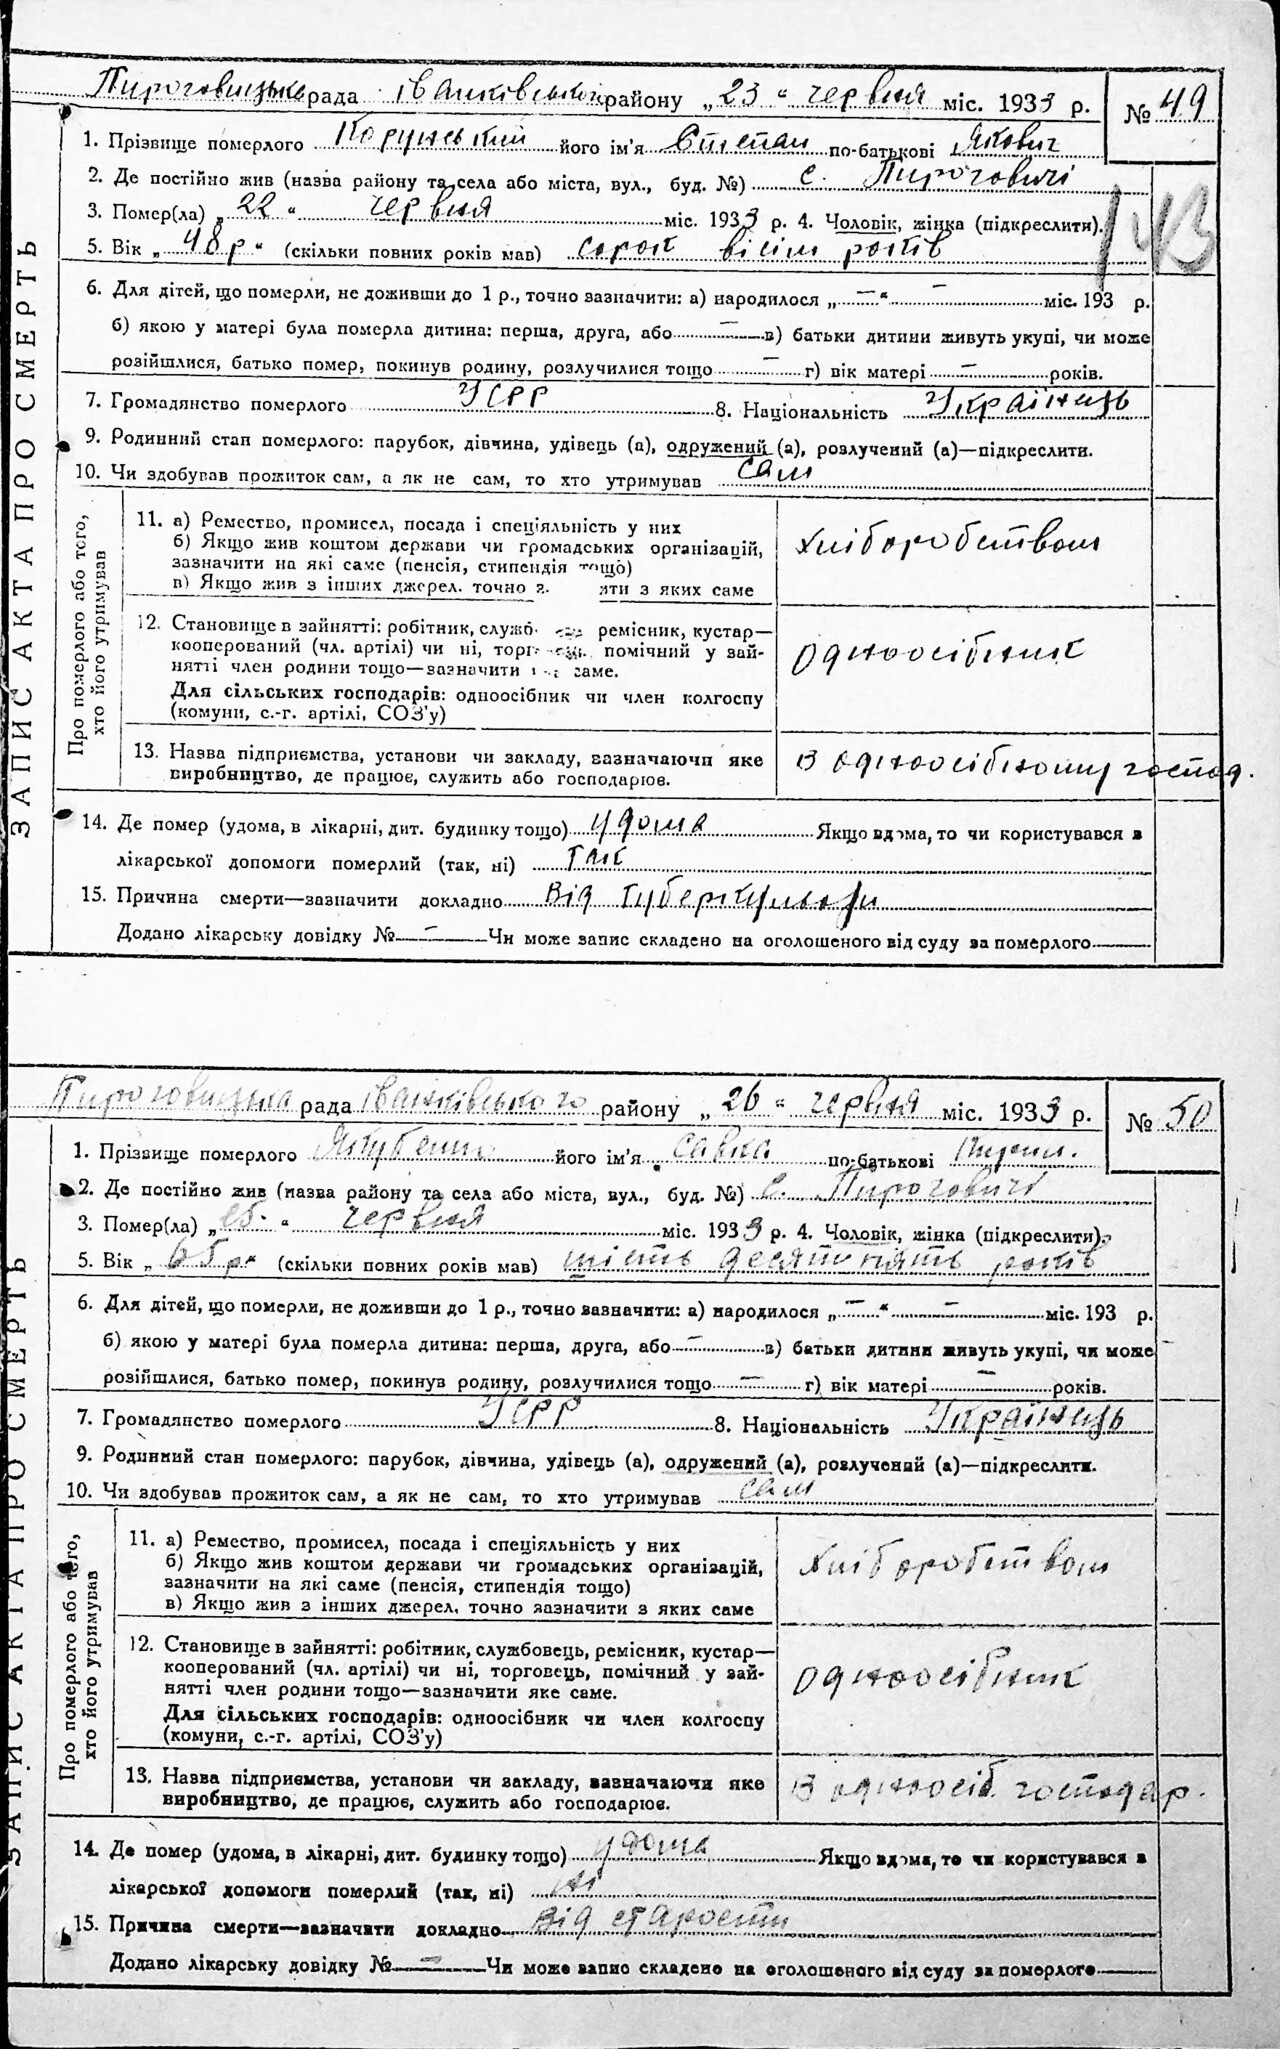 Пироговицька рада Іванківського району „23“ червня міс. 1933 р. № 49
1. Прізвище померлого Корунський його ім'я Степан по-батькові Якович
2. Де постійно жив (назва району та села або міста, вул., буд. №) с. Пироговичі
3. Помер(ла) „22“ червня міс. 1933 р. 4. Чоловік, жінка (підкреслити).
143
5. Вік „48 р“ (скільки повних років мав) сорок вісім років
6. Для дітей, що померли, не доживши до 1 р., точно зазначити: а) народилося „—“ — міс. 193 р.
б) якою у матері була померла дитина: перша, друга, або — в) батьки дитини живуть укупі, чи може
розійшлися, батько помер, покинув родину, розлучилися тощо — г) вік матері — років.
7. Громадянство померлого УСРР 8. Національність Українець
9. Родинний стан померлого: парубок, дівчина, удівець (а), одружений (а), розлучений (а)—підкреслити.
10. Чи здобував прожиток сам, а як не сам, то хто утримував сам
ЗАПИС АКТА ПРО СМЕРТЬ
Про померлого або того,
хто його утримував
11. а) Ремество, промисел, посада і спеціяльність у них
б) Якщо жив коштом держави чи громадських організацій,
зазначити на які саме (пенсія, стипендія тощо)
в) Якщо жив з інших джерел, точно з. яти з яких саме
Хліборобством
12. Становище в зайнятті: робітник, служб. ремісник, кустар—
кооперований (чл. артілі) чи ні, торг помічний у зай-
нятті член родини тощо—зазначити саме.
Для сільських господарів: одноосібник чи член колгоспу
(комуни, с.-г. артілі, СОЗ'у)
одноосібник
13. Назва підприємства, установи чи закладу, зазначаючи яке
виробництво, де працює, служить або господарює.
В одноосібному господ.
14. Де помер (удома, в лікарні, дит. будинку тощо) удома Якщо вдома, то чи користувався з
лікарської допомоги померлий (так, ні) так
15. Причина смерти—зазначити докладно Від туберкульози
Додано лікарську довідку № — Чи може запис складено на оголошеного від суду за померлого
Пироговицька рада Іванківського району „26“ червня міс. 1933 р. № 50
1. Прізвище померлого Якубенко його ім'я Савка по-батькові
2. Де постійно жив (назва району та села або міста, вул., буд. №) с. Пироговичі
3. Помер(ла) „25“ червня міс. 1933 р. 4. Чоловік, жінка (підкреслити).
5. Вік „65 р“ (скільки повних років мав) шість десят пять років
6. Для дітей, що померли, не доживши до 1 р., точно зазначити: а) народилося „—“ — міс. 193 р.
б) якою у матері була померла дитина: перша, друга, або — в) батьки дитини живуть укупі, чи може
розійшлися, батько помер, покинув родину, розлучилися тощо — г) вік матері — років.
7. Громадянство померлого УСРР 8. Національність Українець
9. Родинний стан померлого: парубок, дівчина, удівець (а), одружений (а), розлучений (а)—підкреслити.
10. Чи здобував прожиток сам, а як не сам, то хто утримував сам
ЗАПИС АКТА ПРО СМЕРТЬ
Про померлого або того,
хто його утримував
11. а) Ремество, промисел, посада і спеціяльність у них
б) Якщо жив коштом держави чи громадських організацій,
зазначити на які саме (пенсія, стипендія тощо)
в) Якщо жив з інших джерел, точно зазначити з яких саме
Хліборобством
12. Становище в зайнятті: робітник, службовець, ремісник, кустар—
кооперований (чл. артілі) чи ні, торговець, помічний у зай-
нятті член родини тощо—зазначити яке саме.
Для сільських господарів: одноосібник чи член колгоспу
(комуни, с.-г. артілі, СОЗ'у)
одноосібник
13. Назва підприємства, установи чи закладу, зазначаючи яке
виробництво, де працює, служить або господарює.
В одноосіб. господар.
14. Де помер (удома, в лікарні, дит. будинку тощо) удома Якщо вдома, то чи користувався з
лікарської допомоги померлий (так, ні) ні
15. Причина смерти—зазначити докладно Від старости
Додано лікарську довідку № — Чи може запис складено на оголошеного від суду за померлого